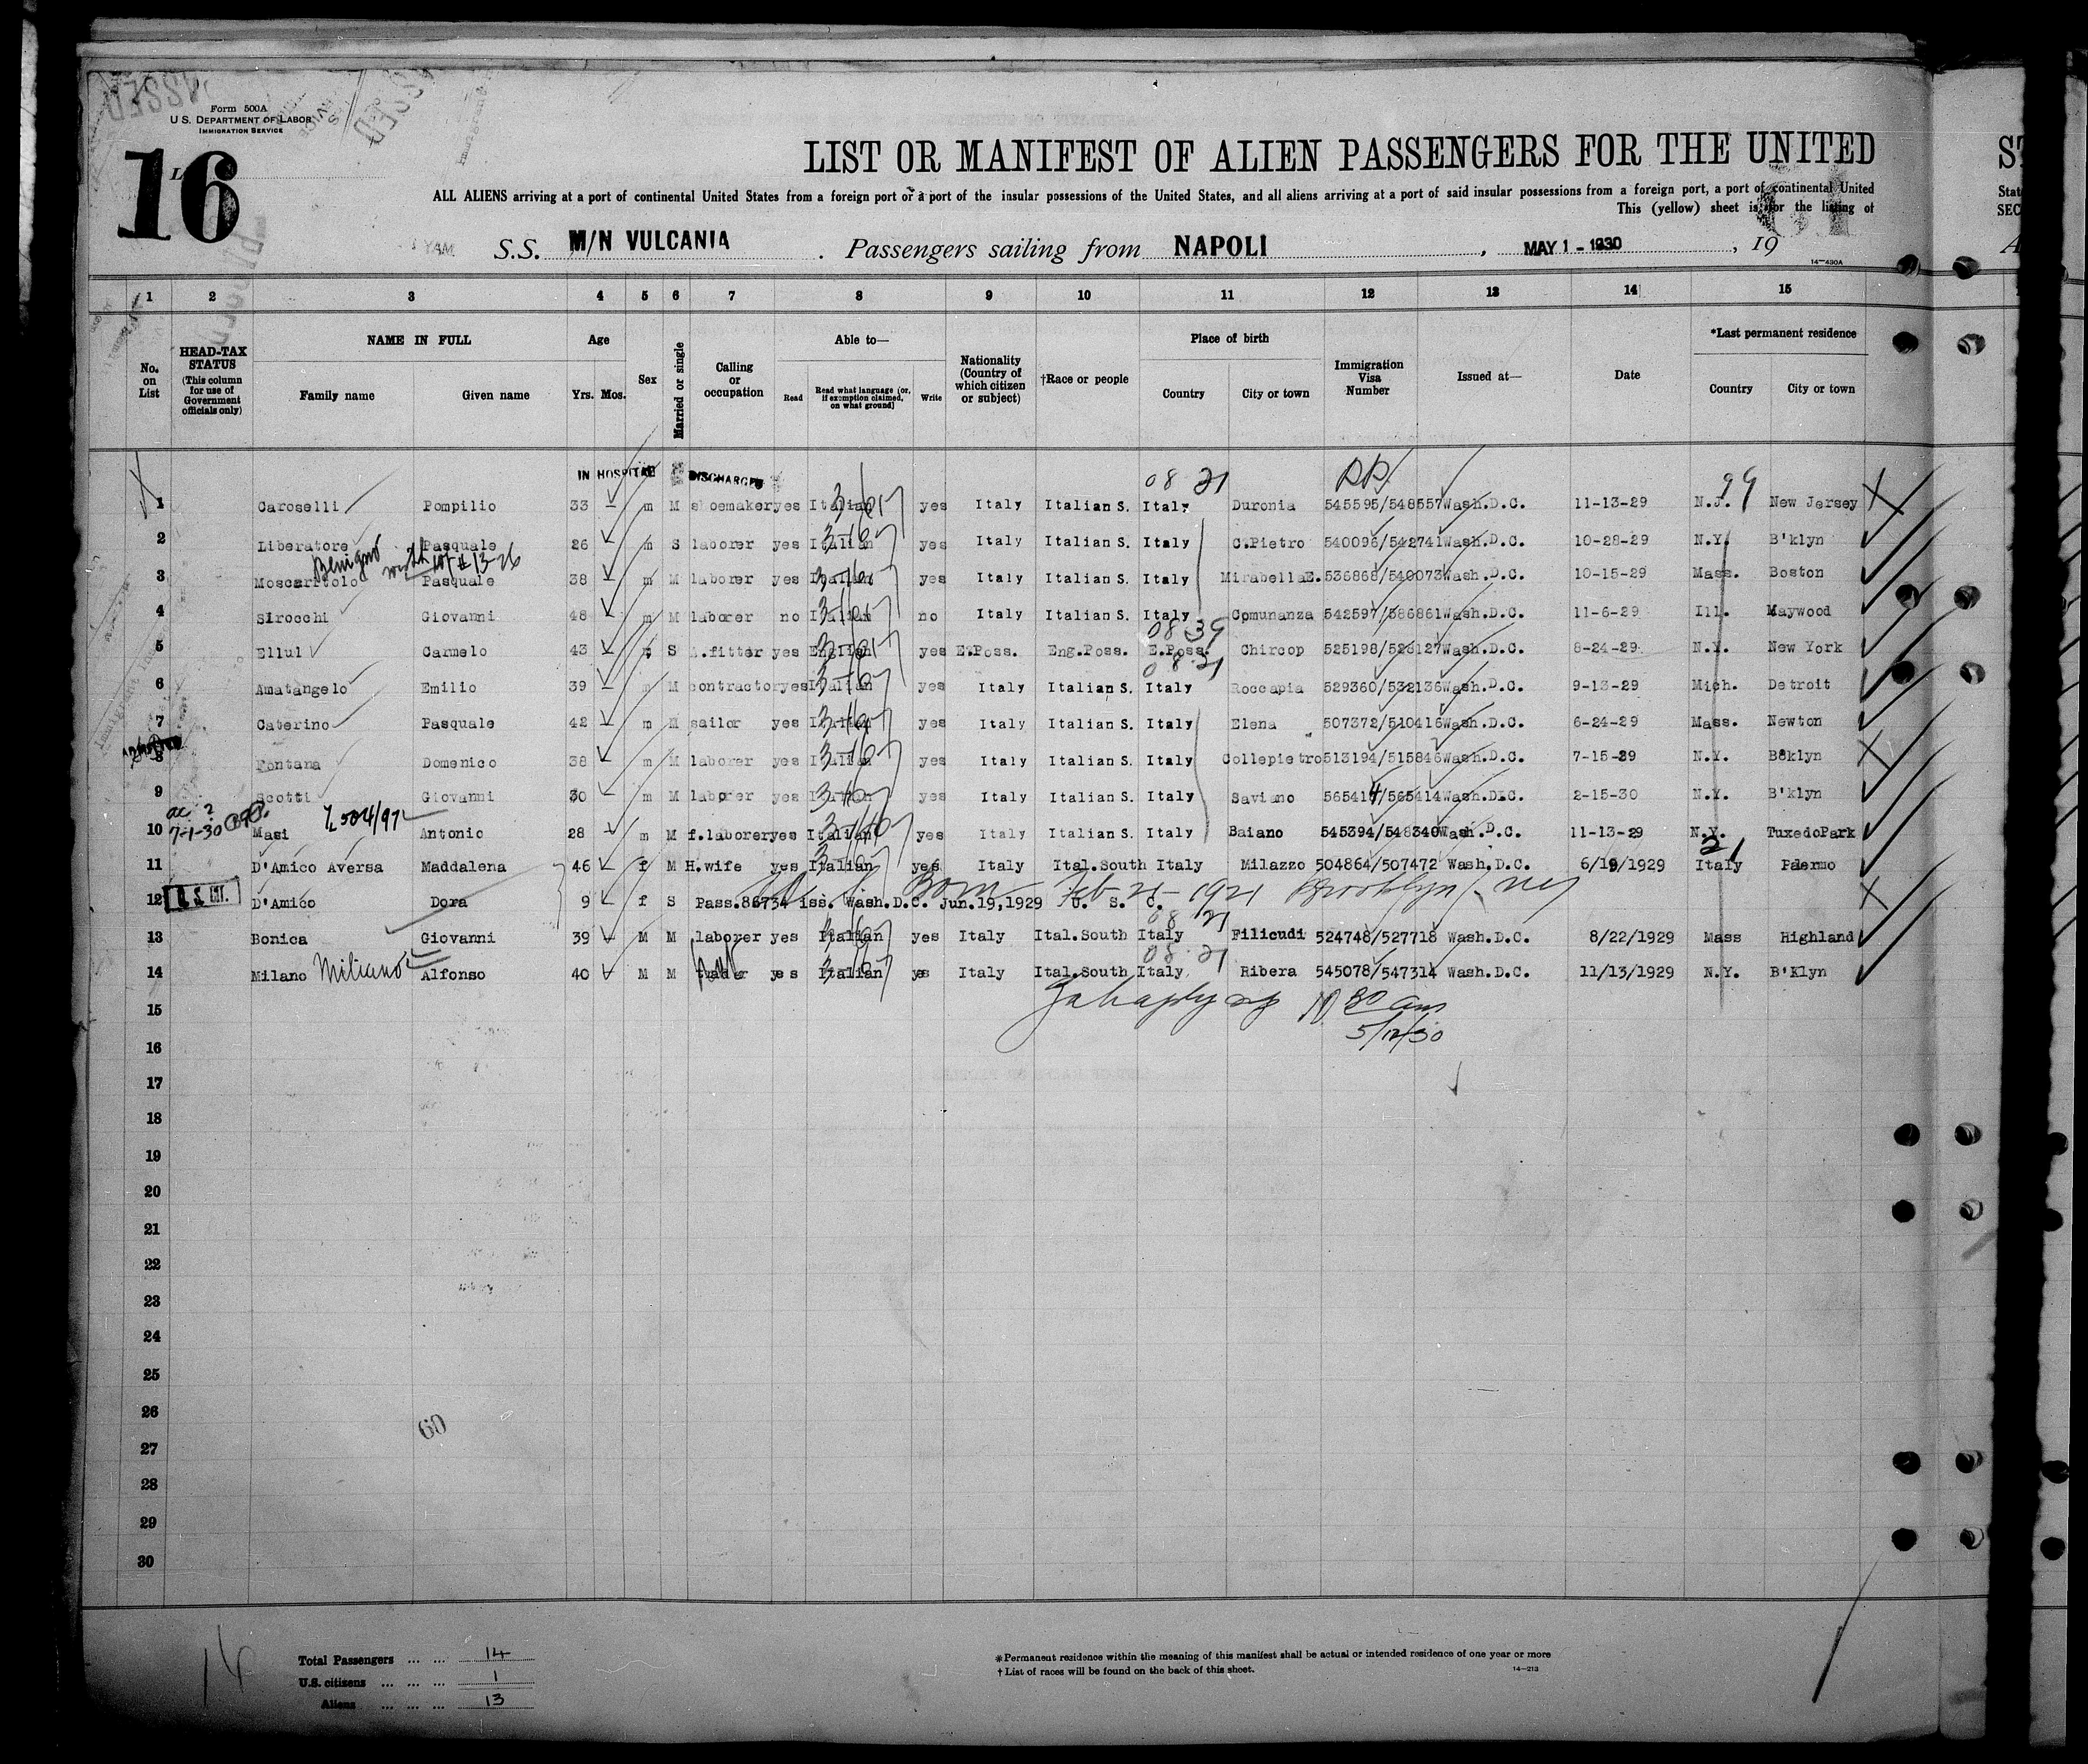 Form 500A
U.S. DEPARTMENT OF LABOR
IMMIGRATION SERVICE
16
LIST OR MANIFEST OF ALIEN PASSENGERS FOR THE UNITED
ALL ALIENS arriving at a port of continental United States from a foreign port or a port of the insular possessions of the United States, and all aliens arriving at a port of said insular possessions from a foreign port, a port of continental United
This (yellow) sheet is for the listing of
S.S. M/N VULCANIA . Passengers sailing from NAPOLI , MAY 1 - 1930 , 19
14—430A
1 2 3 4 5 6 7 8 9 10 11 12 13 14 15
No. on List
HEAD-TAX STATUS
(This column for use of Government officials only)
NAME IN FULL
Family name Given name
Age
Yrs. Mos.
Sex
Married or single
Calling or occupation
Able to—
Read Read what language (or, if exemption claimed, on what ground) Write
Nationality (Country of which citizen or subject)
†Race or people
Place of birth
Country City or town
Immigration Visa Number
Issued at—
Date
*Last permanent residence
Country City or town
IN HOSPITAL DISCHARGED
08 21
99
1 Caroselli Pompilio 33 m M shoemaker yes Italian yes Italy Italian S. Italy Duronia 545595/548557 Wash.D.C. 11-13-29 N.J. New Jersey
2 Liberatore Pasquale 26 m S laborer yes Italian yes Italy Italian S. Italy C.Pietro 540096/542741 Wash.D.C. 10-28-29 N.Y. B'klyn
Benigno
3 Moscaritolo Pasquale 38 m M laborer yes Italian yes Italy Italian S. Italy MirabellaE. 536868/540073 Wash.D.C. 10-15-29 Mass. Boston
4 Sirocchi Giovanni 48 m M laborer no Italian no Italy Italian S. Italy Comunanza 542597/586861 Wash.D.C. 11-6-29 Ill. Maywood
08 39
5 Ellul Carmelo 43 m S .fitter yes English yes E.Poss. Eng.Poss. E.Poss. Chircop 525198/528127 Wash.D.C. 8-24-29 N.Y. New York
08.21
6 Amatangelo Emilio 39 m M contractor yes Italian yes Italy Italian S. Italy Roccapia 529360/532136 Wash.D.C. 9-13-29 Mich. Detroit
7 Caterino Pasquale 42 m M sailor yes Italian yes Italy Italian S. Italy Elena 507372/510416 Wash.D.C. 6-24-29 Mass. Newton
8 Fontana Domenico 38 m M laborer yes Italian yes Italy Italian S. Italy Collepietro 513194/515846 Wash.D.C. 7-15-29 N.Y. Bōklyn
9 Scotti Giovanni 30 m M laborer yes Italian yes Italy Italian S. Italy Saviano 565414/565414 Wash.D.C. 2-15-30 N.Y. B'klyn
7-1-30
10 Masi Antonio 28 m M f.laborer yes Italian yes Italy Italian S. Italy Baiano 545394/548340 Wash.D.C. 11-13-29 N.Y. TuxedoPark
21
11 D'Amico Aversa Maddalena 46 f M H.wife yes Italian yes Italy Ital.South Italy Milazzo 504864/507472 Wash.D.C. 6/19/1929 Italy Palermo
Born Feb 21-1921 Brooklyn, NY
12 D'Amico Dora 9 f S Pass.86734 iss. Wash.D.C. Jun.19,1929 U. S. C.
08 21
13 Bonica Giovanni 39 M M laborer yes Italian yes Italy Ital.South Italy Filicudi 524748/527718 Wash.D.C. 8/22/1929 Mass Highland
08.21
14 Milano Miliano Alfonso 40 M M yes Italian yes Italy Ital.South Italy Ribera 545078/547314 Wash.D.C. 11/13/1929 N.Y. B'Klyn
5/12/30
15
16
17
18
19
20
21
22
23
24
25
26
60
27
28
29
30
Total Passengers ... ... 14
U.S. citizens ... ... ... 1
Aliens ... ... ... 13
*Permanent residence within the meaning of this manifest shall be actual or intended residence of one year or more
† List of races will be found on the back of this sheet.
14—213